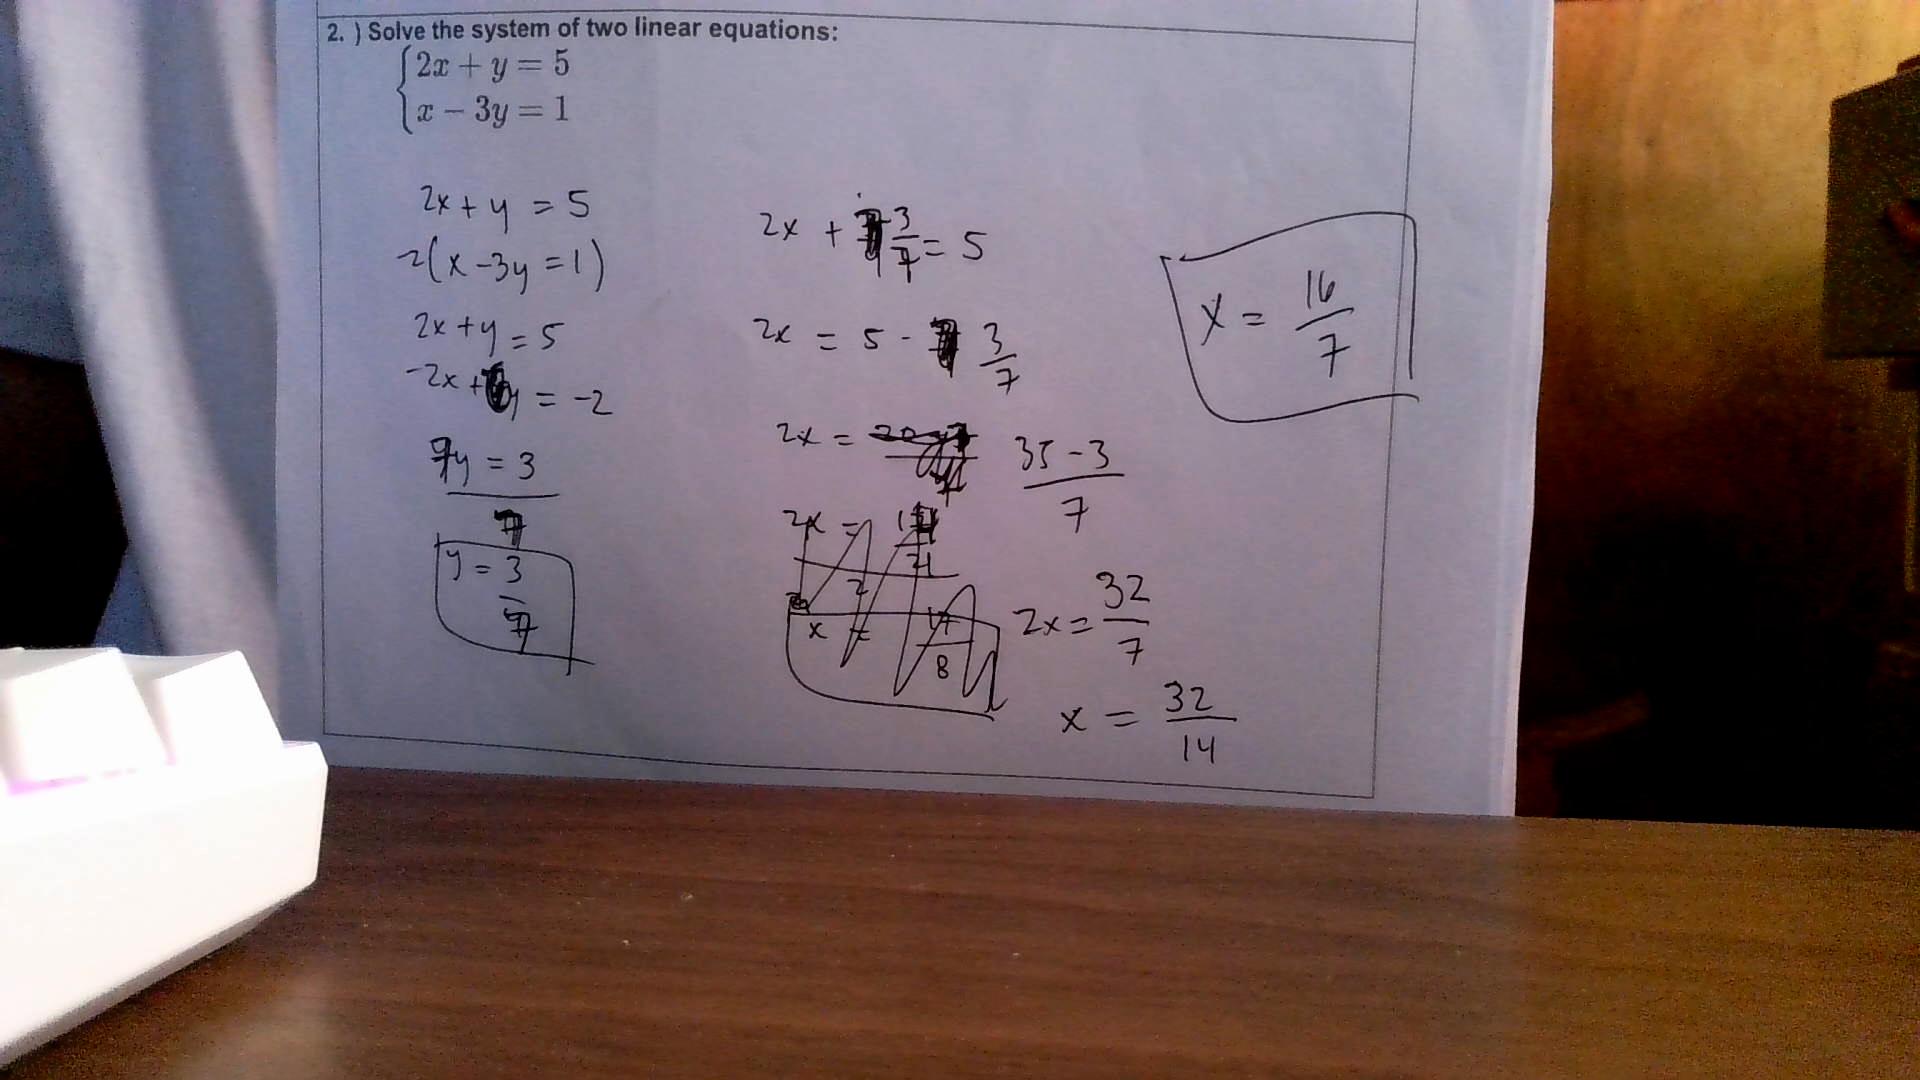 2. ) Solve the system of two linear equations:
2x + y = 5
x − 3y = 1
2x + y = 5
-2(x - 3y = 1)
2x + y = 5
-2x + 6y = -2
7y = 3
7
y = 3
7
2x + 3/7 = 5
2x = 5 - 3/7
2x = 35 - 3
7
2x = 32/7
x = 32/14
x = 16/7